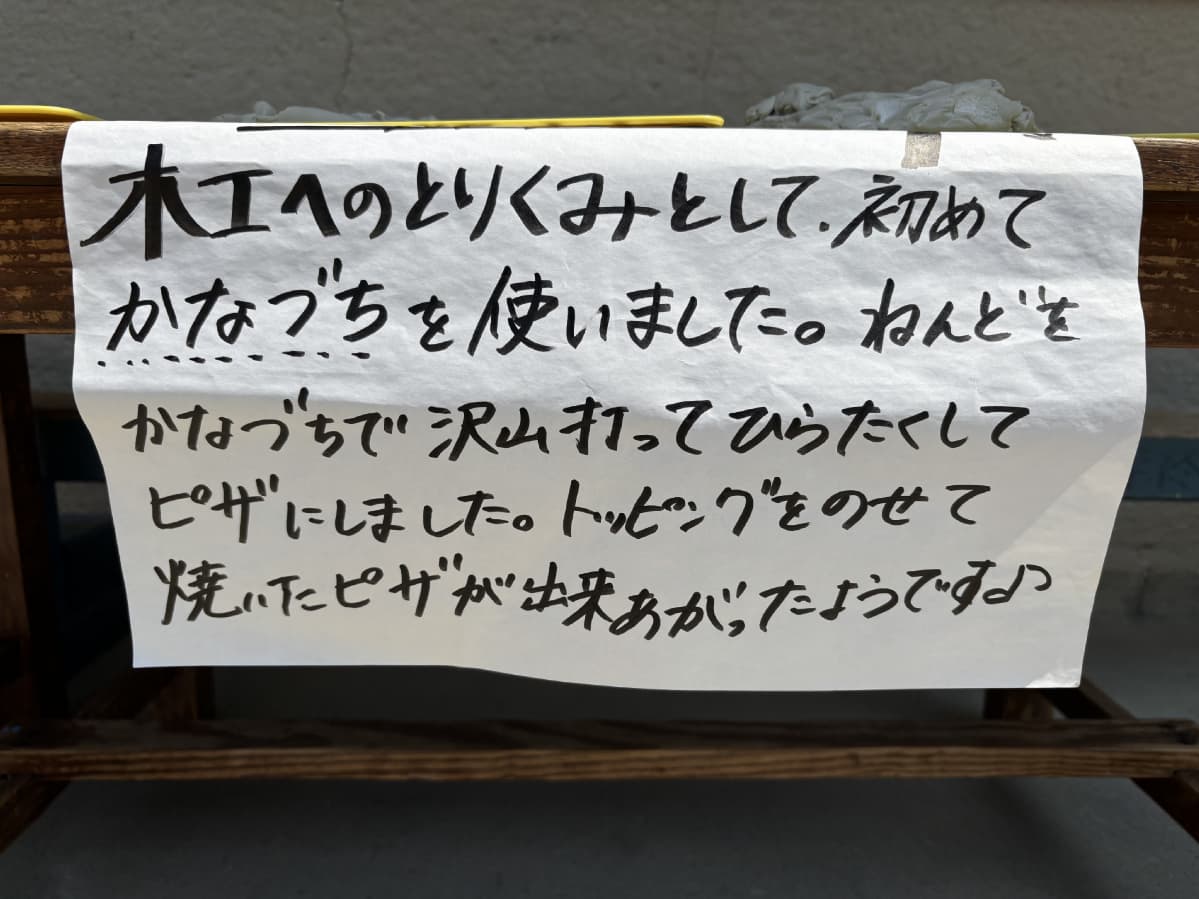 木工へのとりくみとして、初めて
かなづちを使いました。ねんどを
かなづちで沢山打ってひらたくして
ピザにしました。トッピングをのせて
焼いたピザが出来あがったようです♪